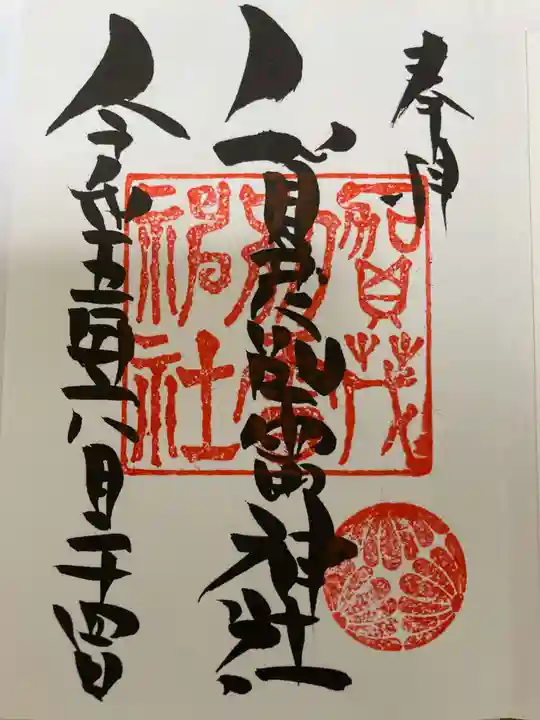 奉拝
賀茂別雷神社
令和五年八月二十四日
賀茂
別雷
神社